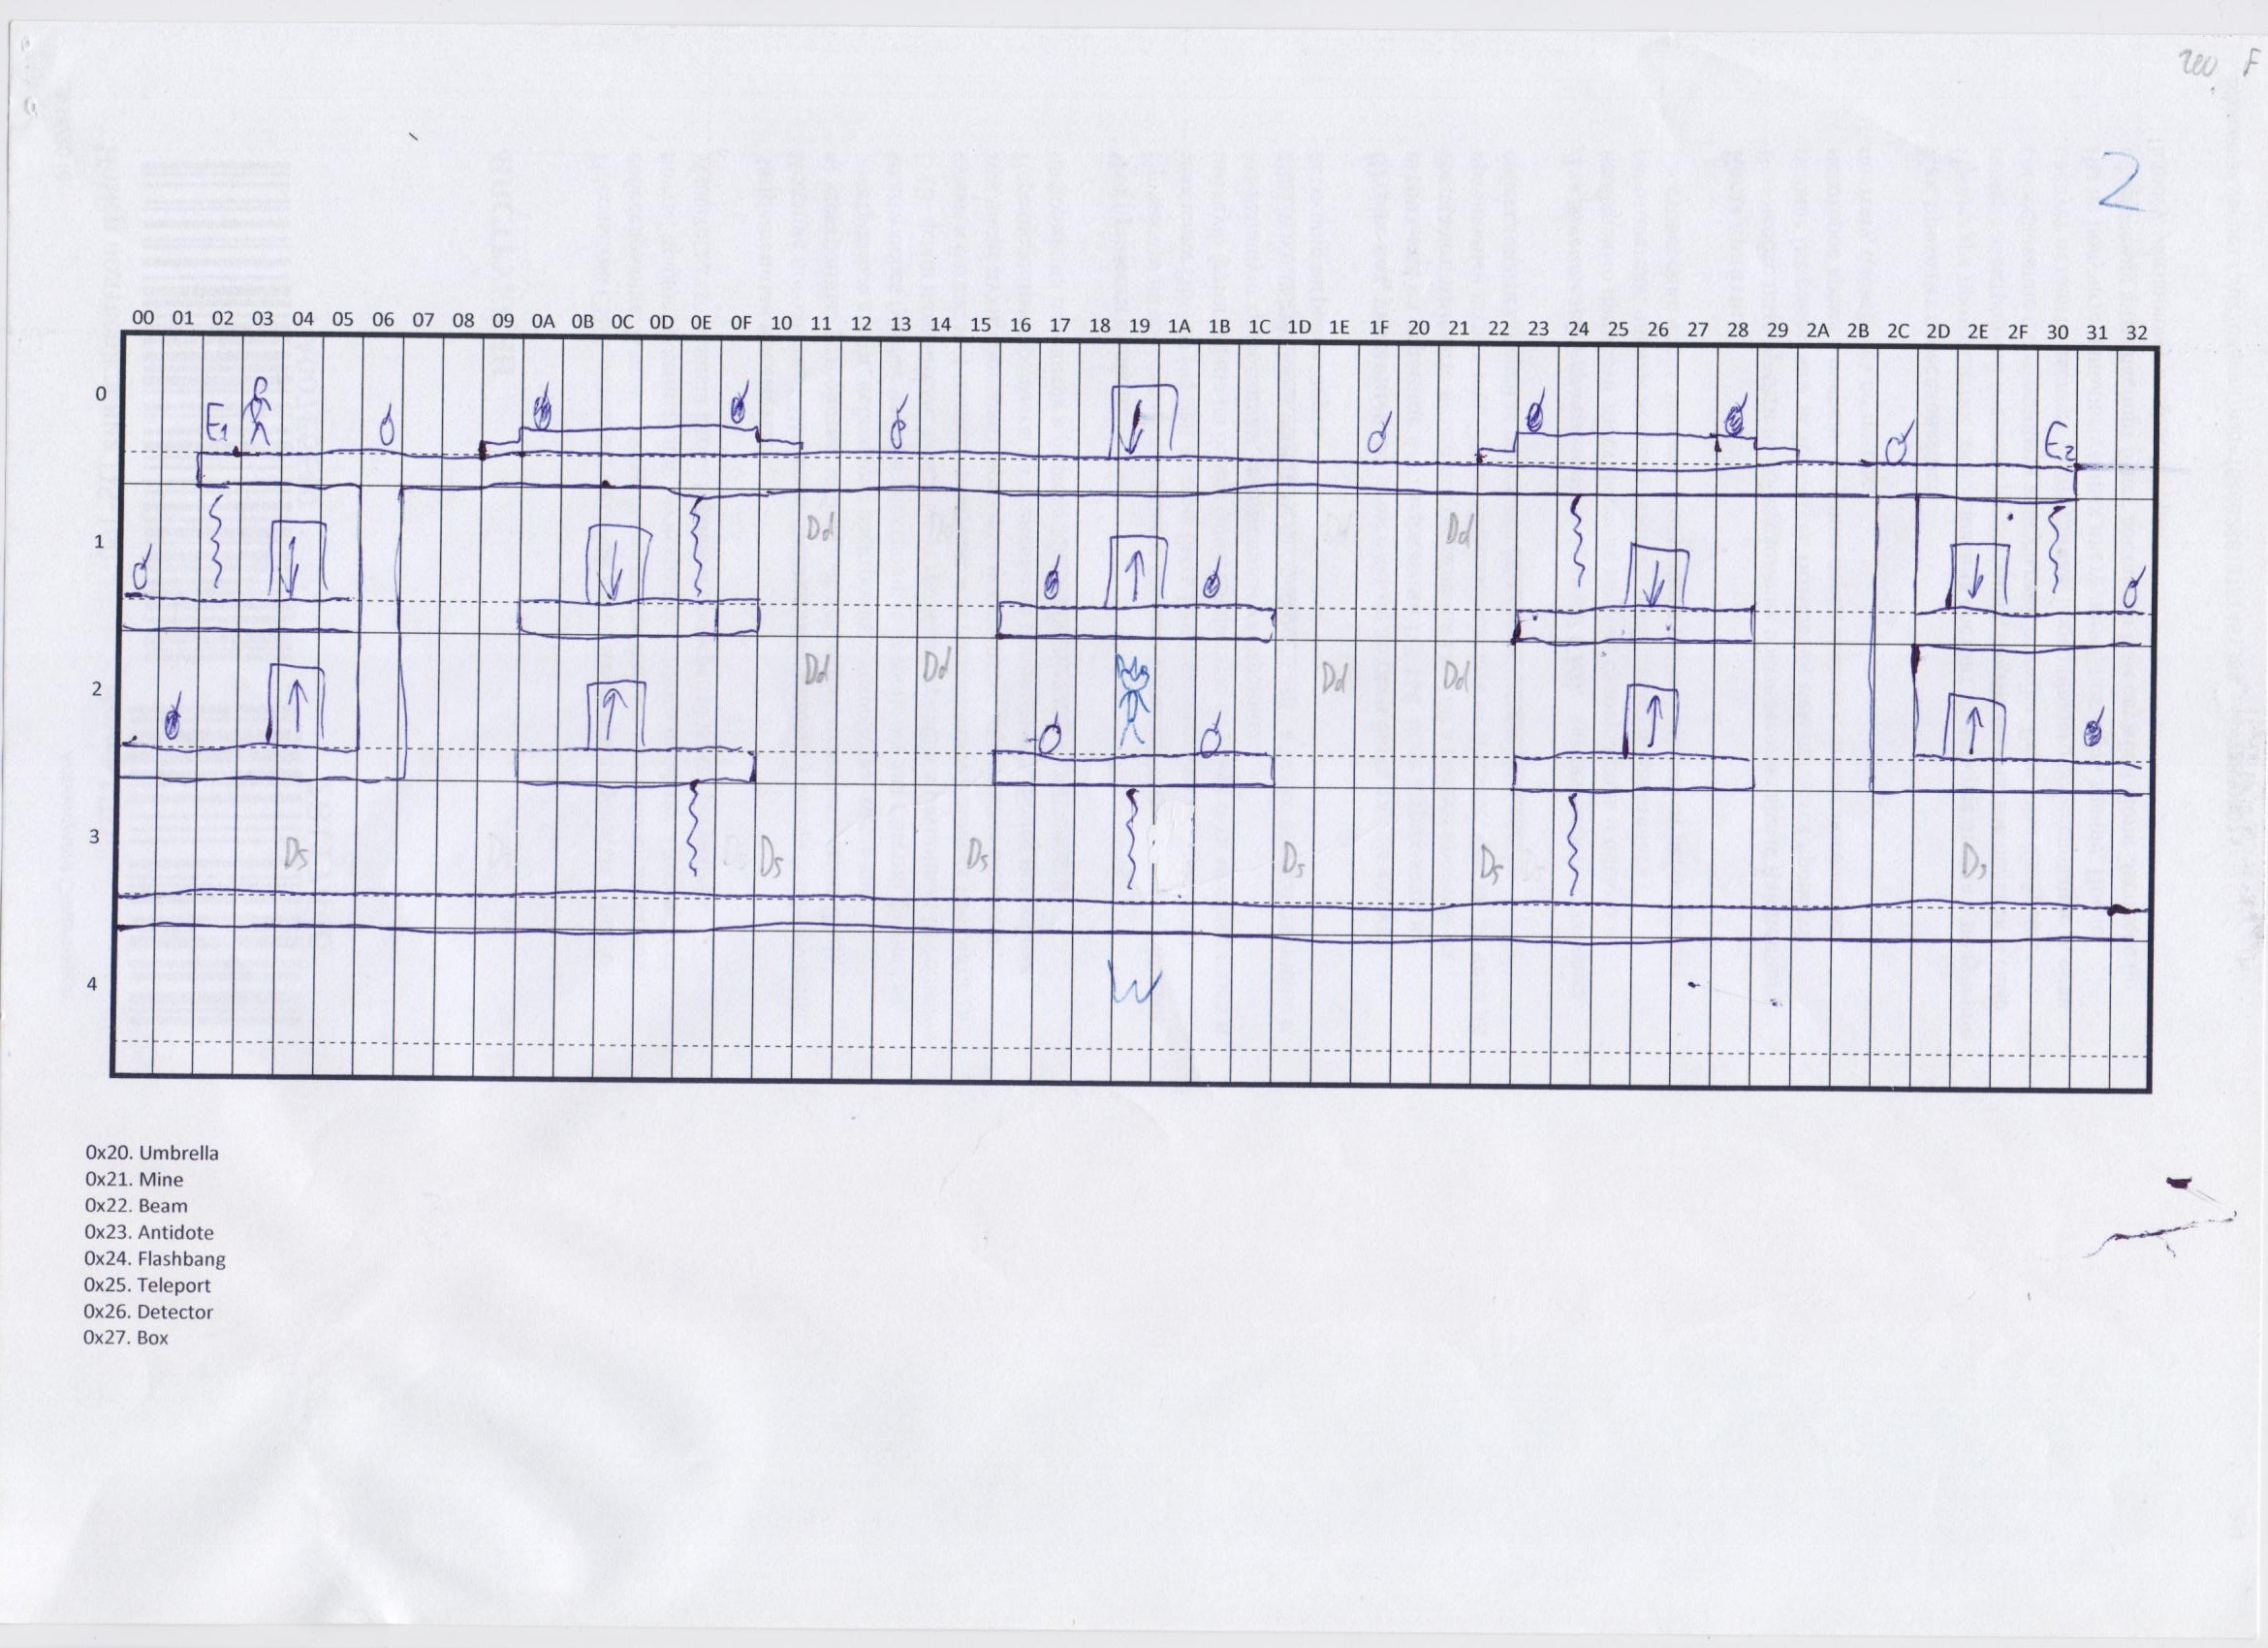 F
2
00 01 02 03 04 05 06 07 08 09 0A 0B 0C 0D 0E 0F 10 11 12 13 14 15 16 17 18 19 1A 1B 1C 1D 1E 1F 20 21 22 23 24 25 26 27 28 29 2A 2B 2C 2D 2E 2F 30 31 32
0
E1 E2
1
Dd Dd
2
Dd Dd Dd Dd
3
Ds Ds Ds Ds Ds Ds
4
W
0x20. Umbrella
0x21. Mine
0x22. Beam
0x23. Antidote
0x24. Flashbang
0x25. Teleport
0x26. Detector
0x27. Box